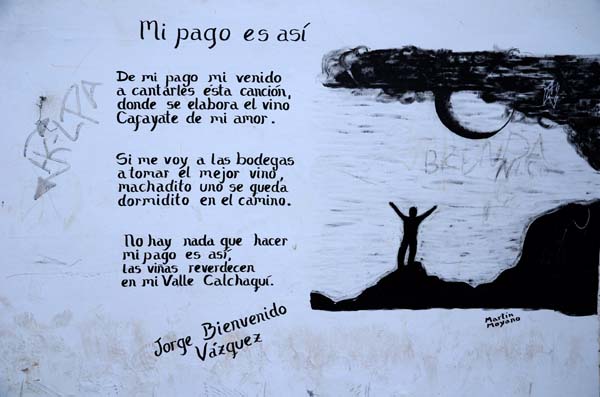 Mi pago es así
De mi pago mi venido
a cantarles esta canción,
donde se elabora el vino
Cafayate de mi amor.
Si me voy a las bodegas
a tomar el mejor vino,
machadito uno se queda
dormidito en el camino.
No hay nada que hacer
mi pago es así,
las viñas reverdecen
en mi Valle Calchaquí.
Jorge Bienvenido
Vázquez
Martín
Moyano